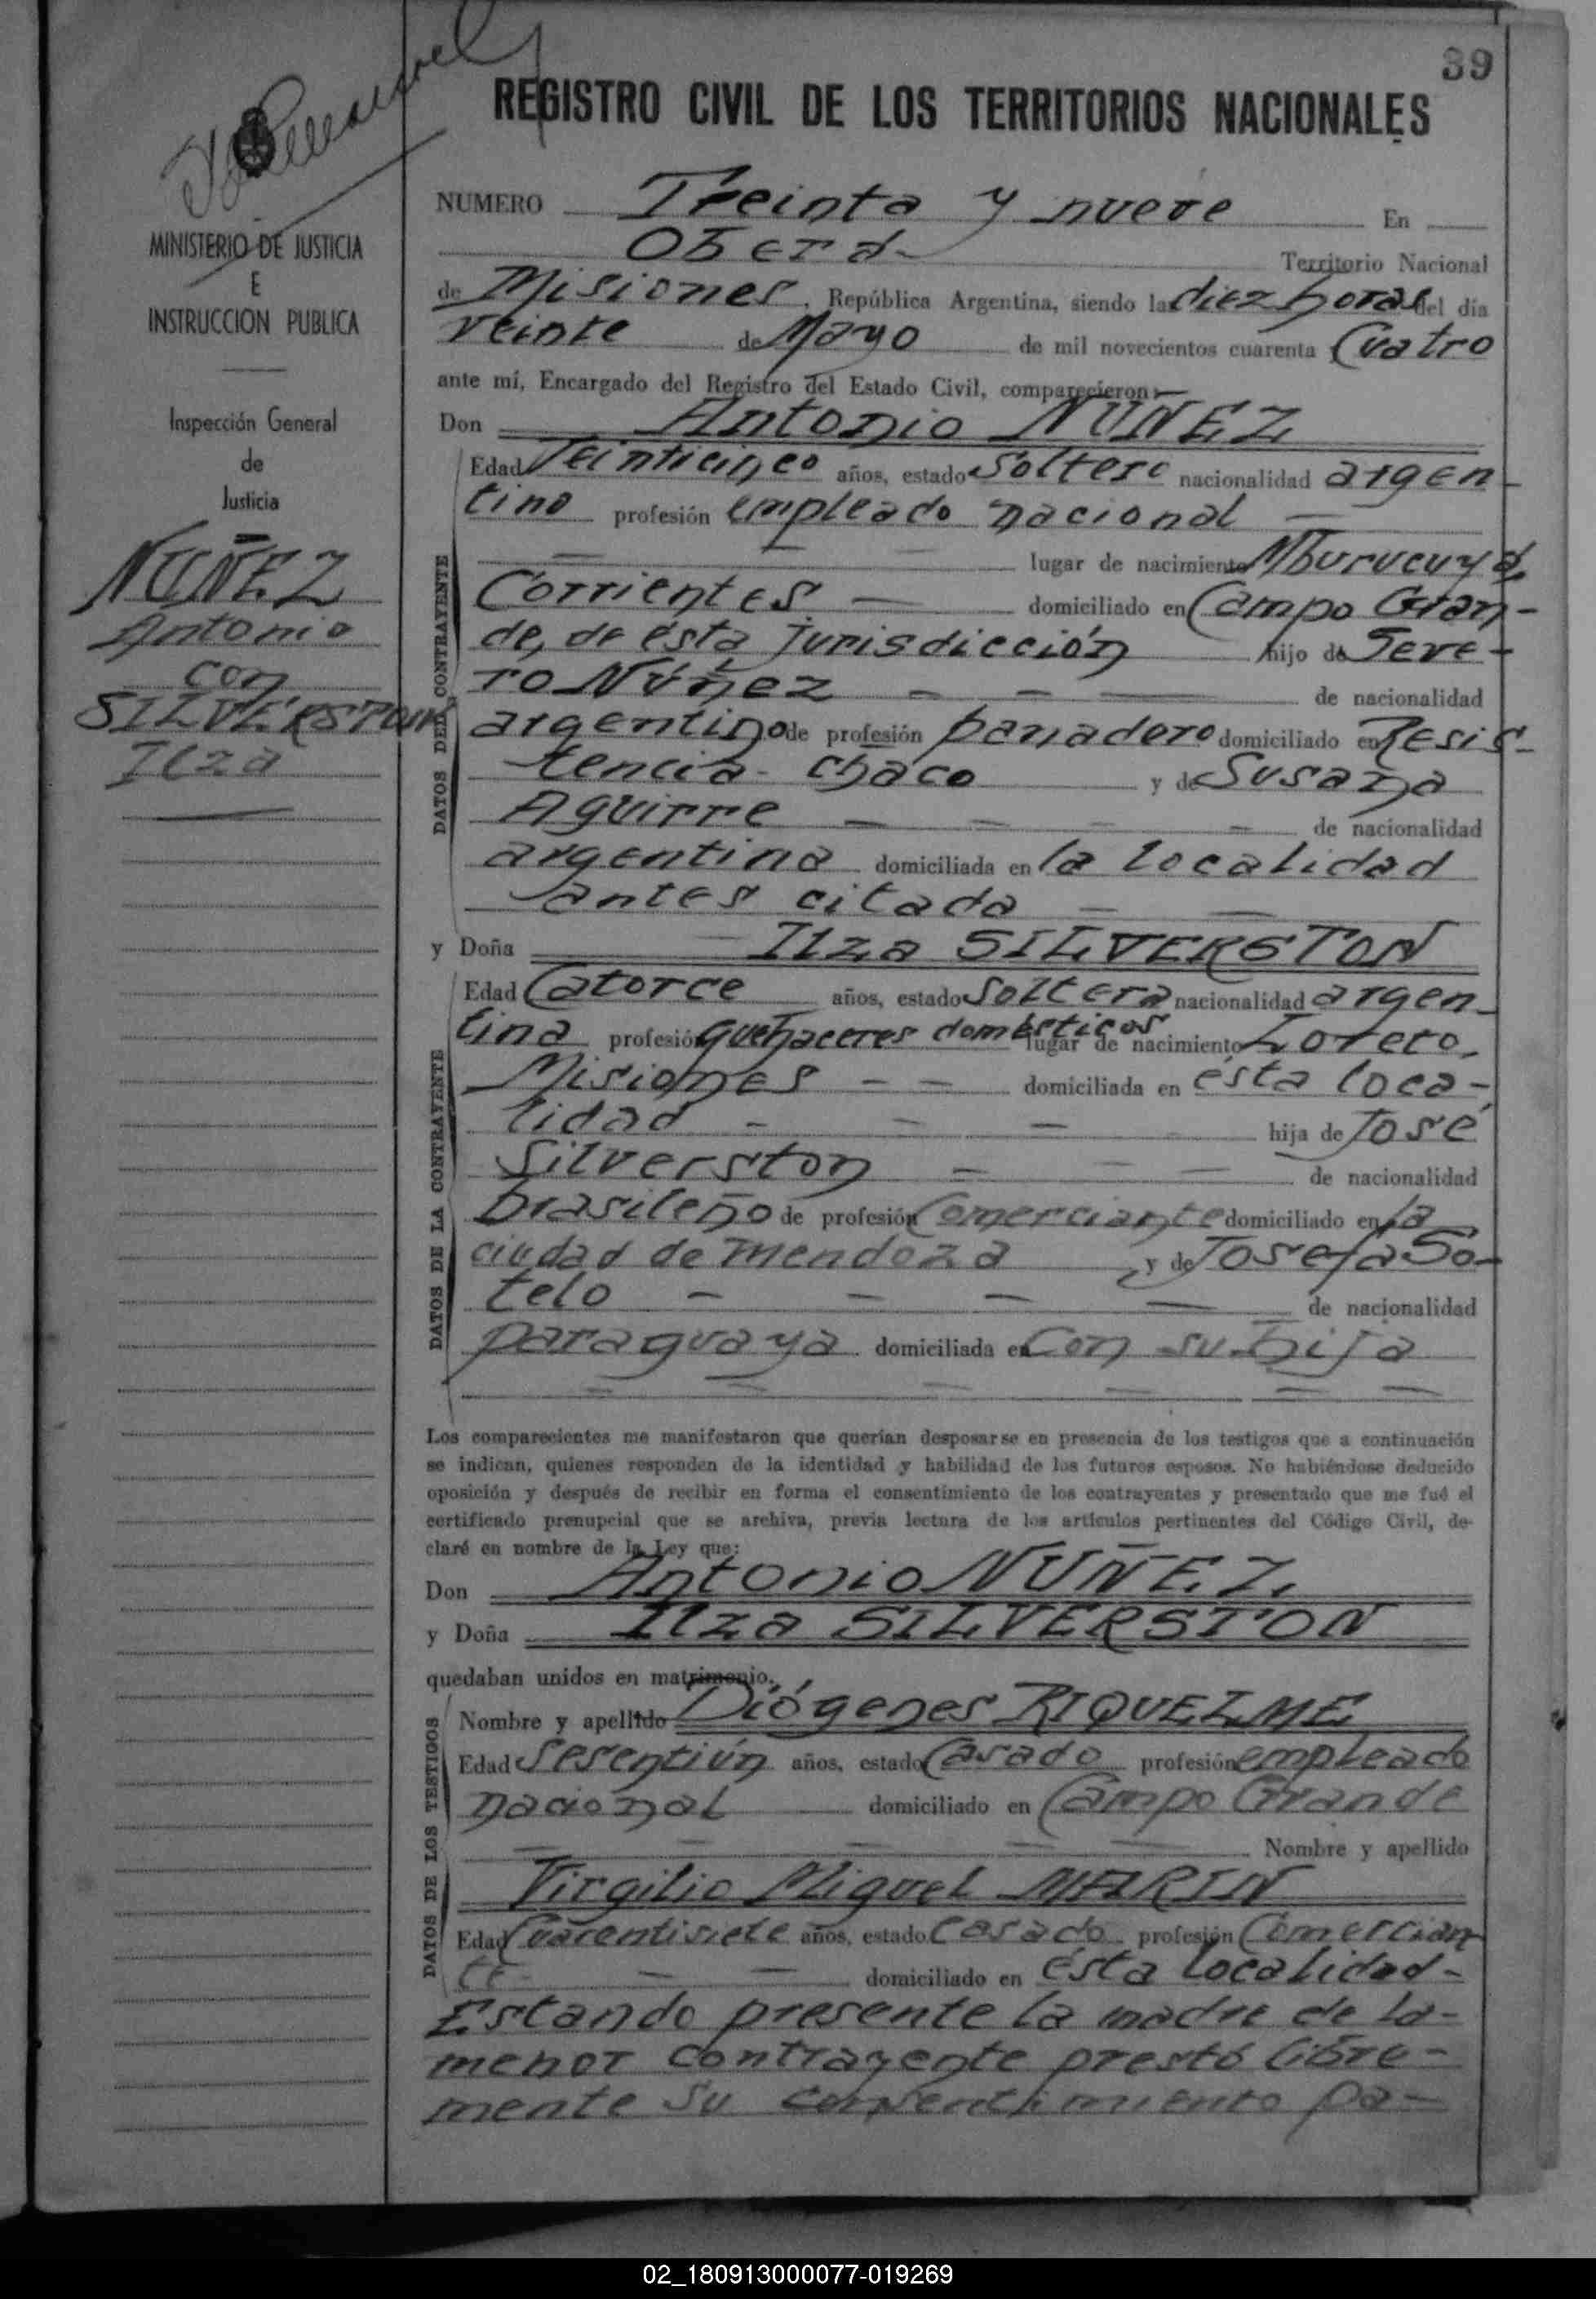 39
REGISTRO CIVIL DE LOS TERRITORIOS NACIONALES
MINISTERIO DE JUSTICIA
E
INSTRUCCION PUBLICA
Inspección General
de
Justicia
NUÑEZ
Antonio
con
SILVERSTON
Ilza
NUMERO Treinta y nueve En
Oberá
Territorio Nacional
de Misiones, República Argentina, siendo las diez horas del día
veinte de Mayo de mil novecientos cuarenta Cuatro
ante mí, Encargado del Registro del Estado Civil, comparecieron:
Don Antonio NUÑEZ
Edad Veinticinco años, estado Soltero nacionalidad argen-
tino profesión empleado nacional
lugar de nacimiento Mburucuyá,
Corrientes domiciliado en Campo Gran-
de, de ésta jurisdicción hijo de Seve-
ro Núñez de nacionalidad
argentino de profesión panadero domiciliado en Resis-
tencia - Chaco y de Susana
Aguirre de nacionalidad
argentina domiciliada en la localidad
antes citada
y Doña Ilza SILVERSTON
Edad Catorce años, estado Soltera nacionalidad argen-
tina profesión quehaceres domésticos lugar de nacimiento Loreto,
Misiones domiciliada en ésta loca-
lidad hija de José
Silverston de nacionalidad
brasileño de profesión Comerciante domiciliado en la
ciudad de Mendoza y de Josefa So-
telo de nacionalidad
paraguaya domiciliada en Con su hija
DATOS DEL CONTRAYENTE
DATOS DE LA CONTRAYENTE
Los comparecientes me manifestaron que querían desposarse en presencia de los testigos que a continuación
se indican, quienes responden de la identidad y habilidad de los futuros esposos. No habiéndose deducido
oposición y después de recibir en forma el consentimiento de los contrayentes y presentado que me fué el
certificado prenupcial que se archiva, previa lectura de los artículos pertinentes del Código Civil, de-
claré en nombre de la Ley que:
Don Antonio NUÑEZ
y Doña Ilza SILVERSTON
quedaban unidos en matrimonio.
DATOS DE LOS TESTIGOS
Nombre y apellido Diógenes RIQUELME
Edad Sesentiún años, estado Casado profesión empleado
nacional domiciliado en Campo Grande
Nombre y apellido
Virgilio Miguel MARIN
Edad Cuarentisiete años, estado Casado profesión Comercian
te domiciliado en ésta localidad-
Estando presente la madre de la-
menor contrayente prestó libre-
mente su consentimiento pa-
02_180913000077-019269